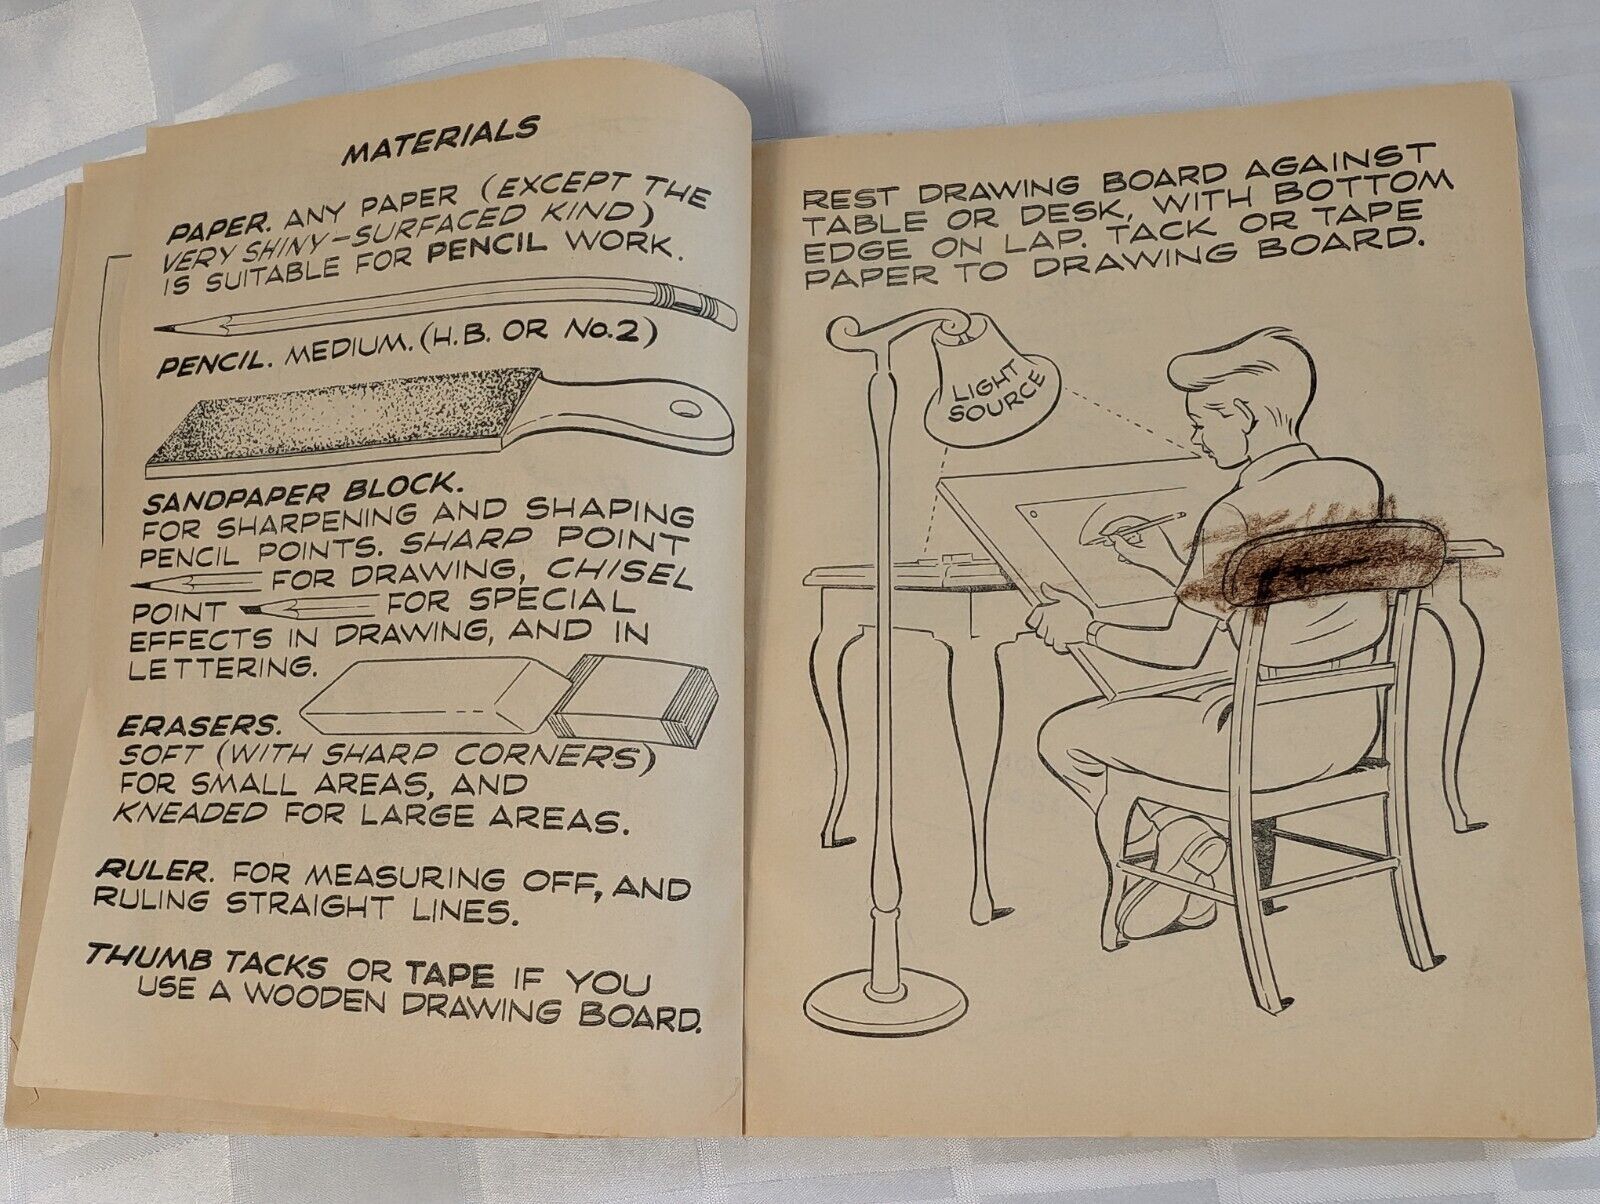 MATERIALS
PAPER. ANY PAPER (EXCEPT THE
VERY SHINY-SURFACED KIND)
IS SUITABLE FOR PENCIL WORK.
PENCIL. MEDIUM. (H.B. OR No.2)
SANDPAPER BLOCK.
FOR SHARPENING AND SHAPING
PENCIL POINTS. SHARP POINT
FOR DRAWING, CHISEL
POINT FOR SPECIAL
EFFECTS IN DRAWING, AND IN
LETTERING.
ERASERS.
SOFT (WITH SHARP CORNERS)
FOR SMALL AREAS, AND
KNEADED FOR LARGE AREAS.
RULER. FOR MEASURING OFF, AND
RULING STRAIGHT LINES.
THUMB TACKS OR TAPE IF YOU
USE A WOODEN DRAWING BOARD.
REST DRAWING BOARD AGAINST
TABLE OR DESK, WITH BOTTOM
EDGE ON LAP. TACK OR TAPE
PAPER TO DRAWING BOARD.
LIGHT
SOURCE